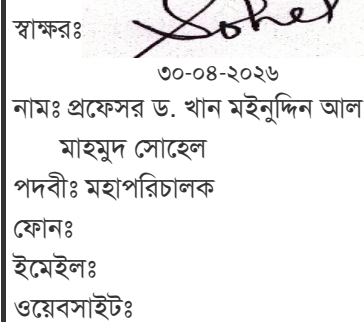 স্বাক্ষরঃ Sohel
৩০-০৪-২০২৬
নামঃ প্রফেসর ড. খান মইনুদ্দিন আল
মাহমুদ সোহেল
পদবীঃ মহাপরিচালক
ফোনঃ
ইমেইলঃ
ওয়েবসাইটঃ